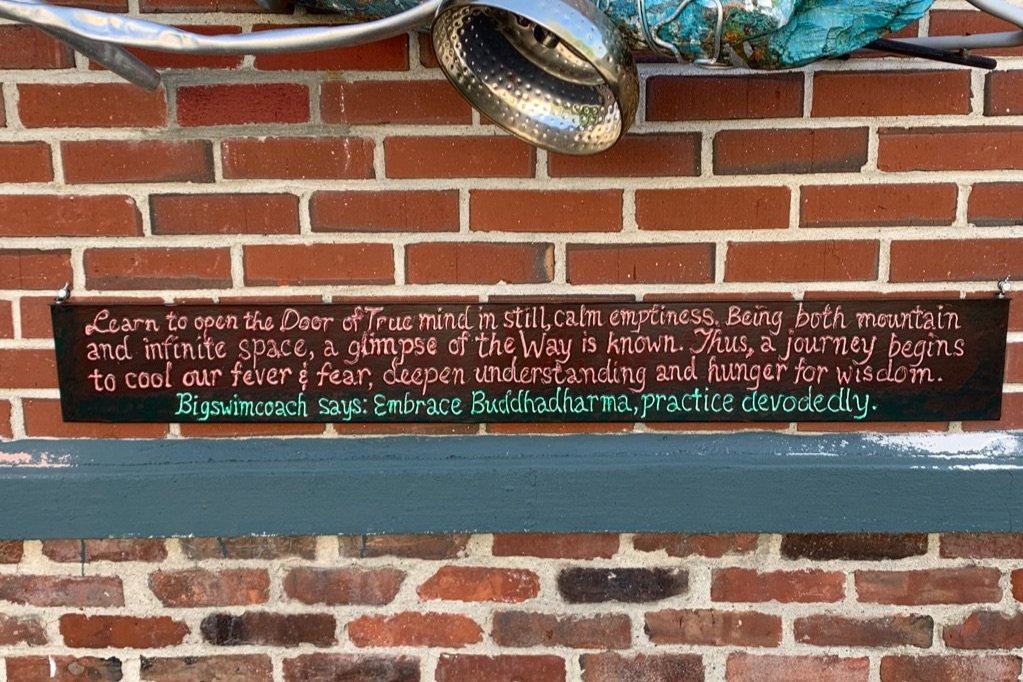 Learn to open the Door of True mind in still, calm emptiness. Being both mountain
and infinite space, a glimpse of the Way is known. Thus, a journey begins
to cool our fever & fear, deepen understanding and hunger for wisdom.
Bigswimcoach says: Embrace Buddhadharma, practice devodedly.